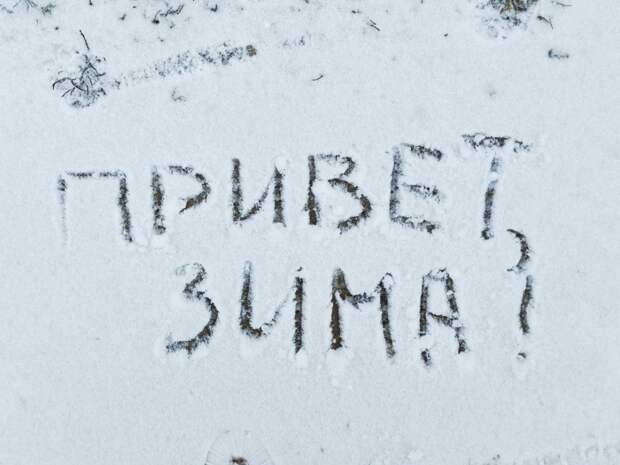 ПРИВЕТ,
ЗИМА!